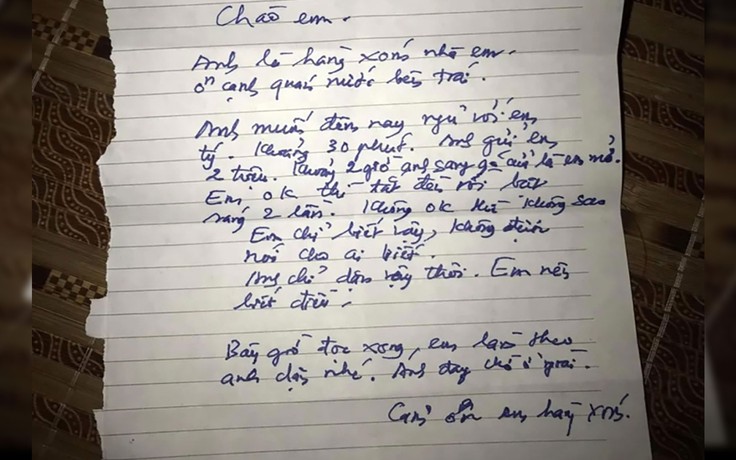 Chào em.
Anh là hàng xóm nhà em.
ở cạnh quán nước bên trái.
Anh muốn đêm nay ngủ với em
tý. Khoảng 30 phút. Anh gửi em
2 triệu. Khoảng 2 giờ anh sang gõ cửa là em mở.
Em ok thì tắt đèn rồi bật
sáng 2 lần. Không ok thì không sao
Em chỉ biết vậy, không được
nói cho ai biết.
Anh chỉ dặn vậy thôi. Em nên
biết điều.
Bây giờ đọc xong, em làm theo
anh dặn nhé. Anh đây chỗ
Cảm ơn em hàng xóm.